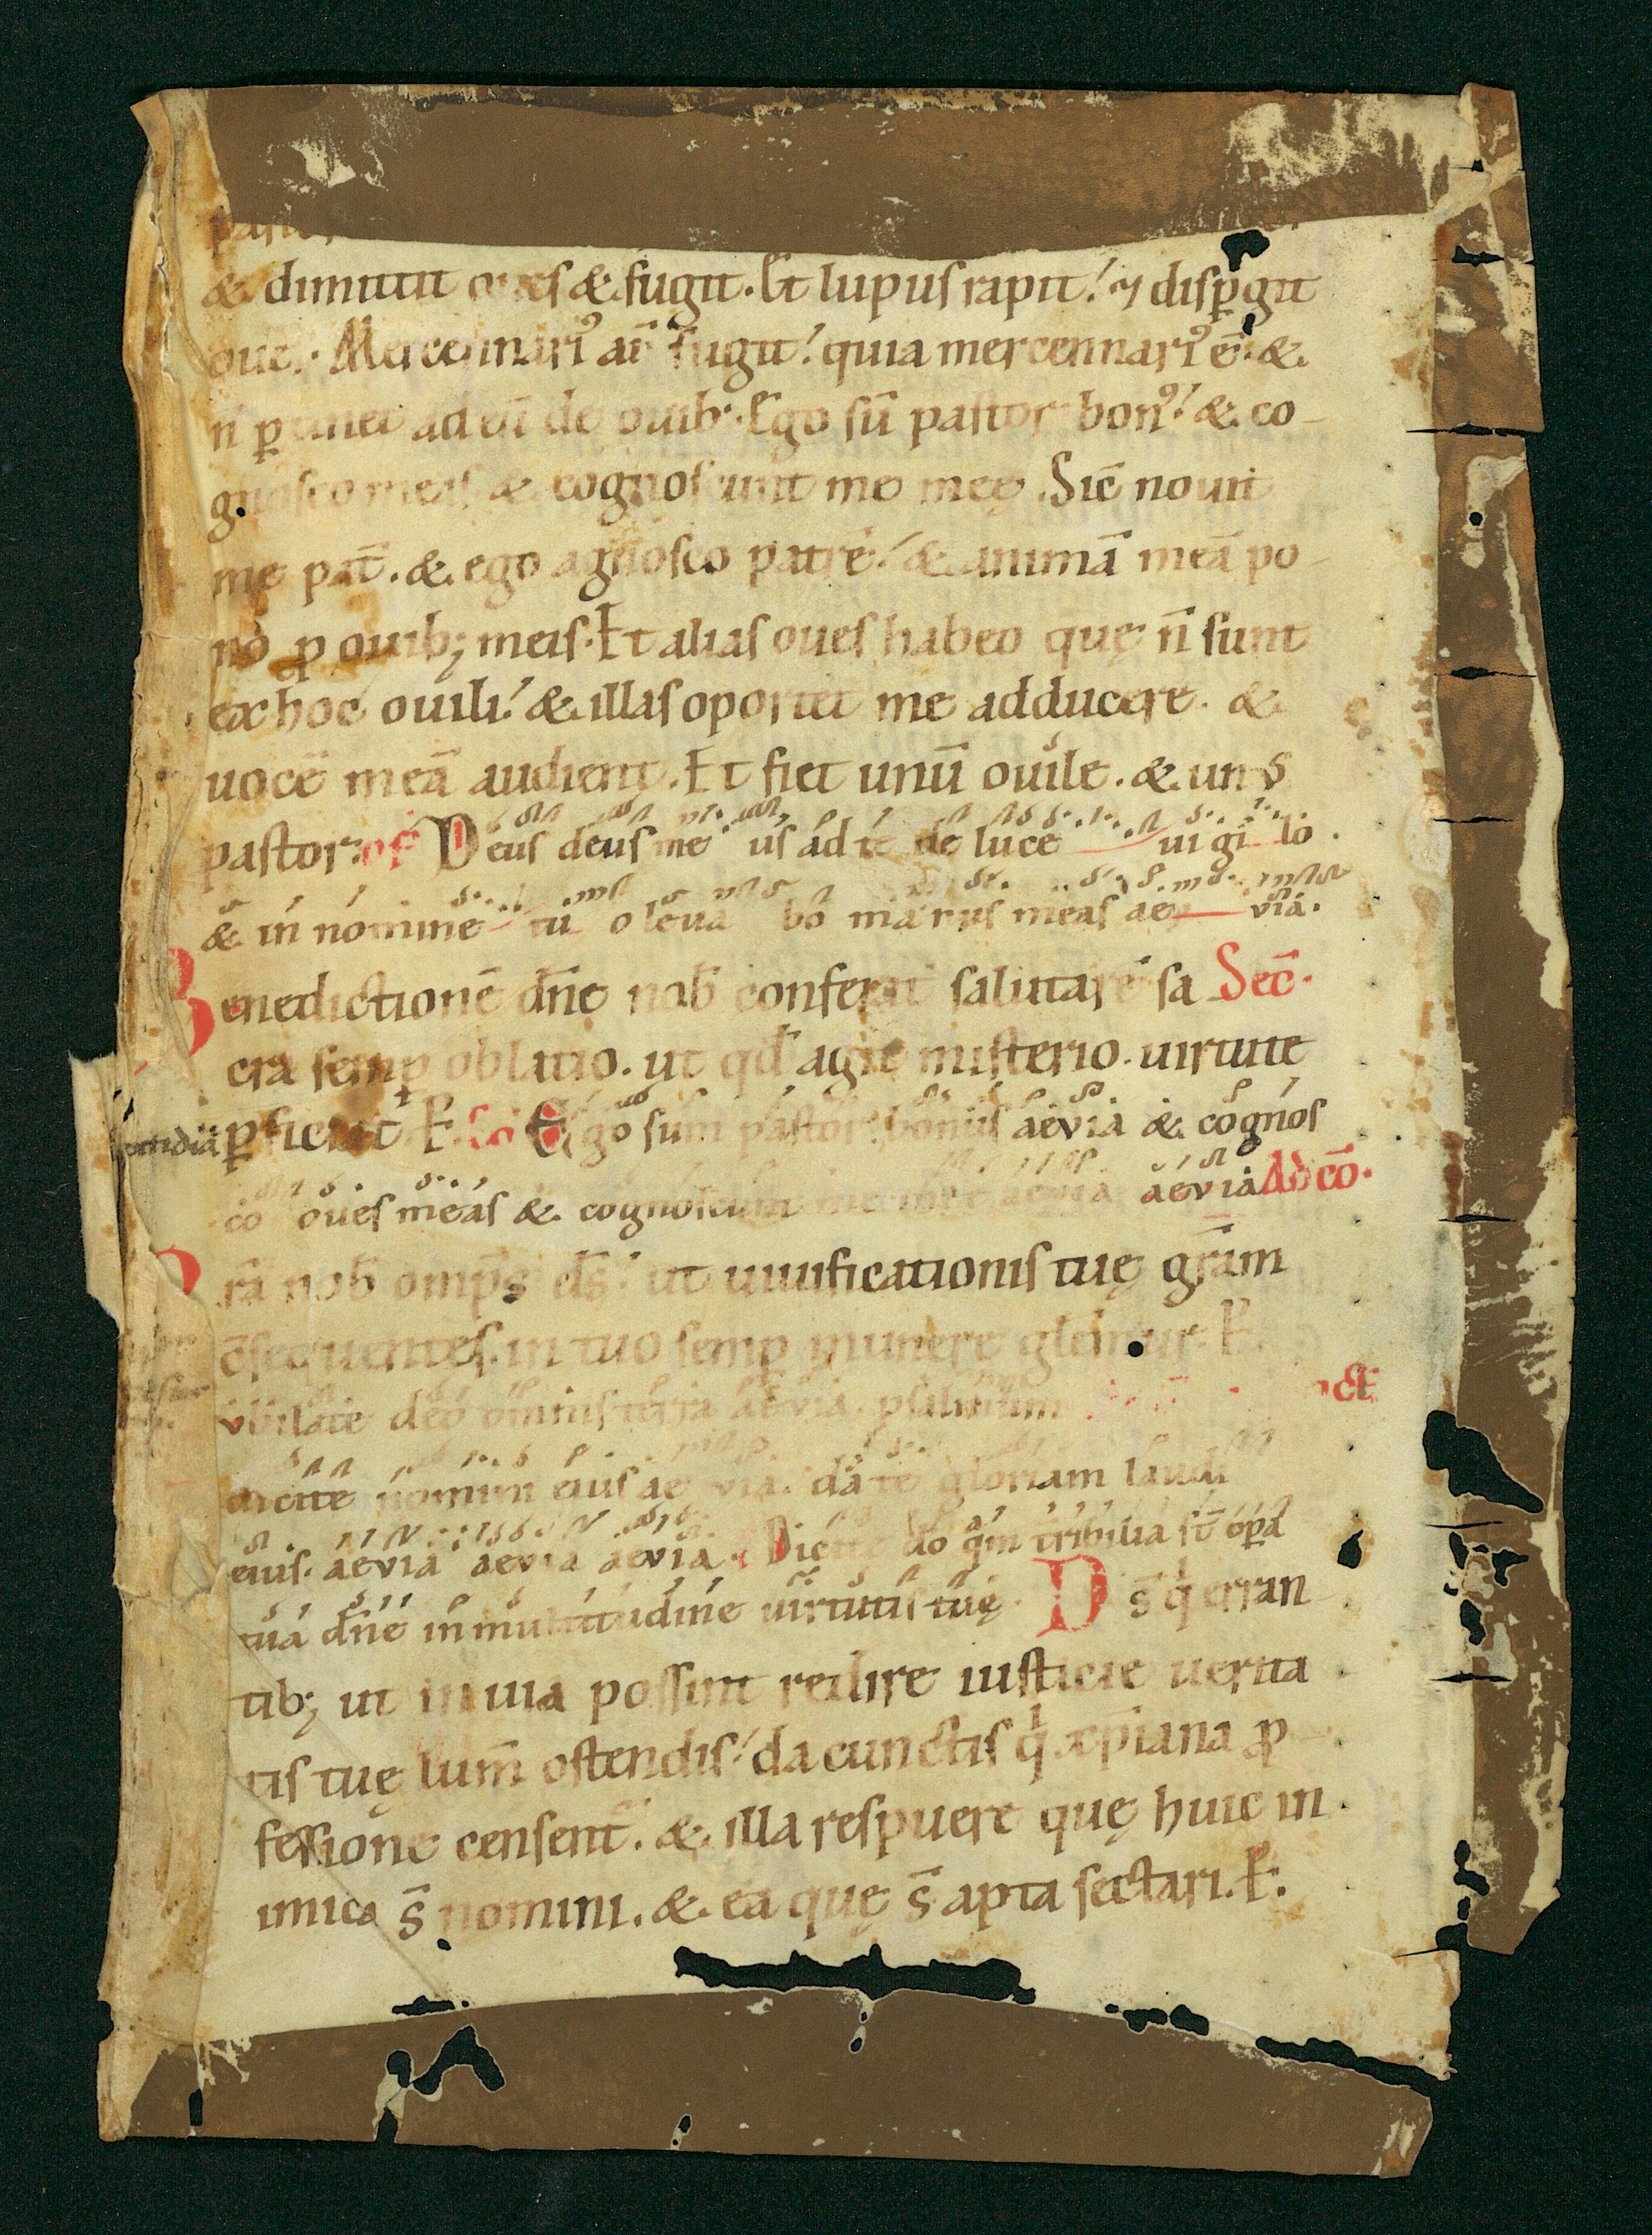 & dimittit oues & fugit. Et lupus rapit! ⁊ disꝑgit
oues. Mercennariꝰ aū fugit! quia mercennariꝰ ē. &
n̄ ꝑtinet ad eū de ouib. Ego sū pastor bonꝰ! & co-
gnosco meas & cognoscunt me meę. Sic̄ nouit
me pat̄. & ego agnosco patrē! & animā meā po-
no ꝓ ouib; meis. Et alias oues habeo quę n̄ sunt
ex hoc ouili! & illas oportet me adducere. &
uocē meā audient. Et fiet unū ouile. & unꝰ
pastor. of Deus deus me us ad te de luce uigi lo.
& in nomine tu o leua bo manus meas aeuia.
Benedictionē dn̄e nob̄ conferat salutarē sa Sec̄.
cra semꝑ oblatio. ut qd̄ agit misterio. uirtute
ꝑficiat. P. Co Ego sum pastor bonus aevia & cognos
co oues meas & cognoscunt me meę aevia aevia Ad cō.
Pr̄a nob̄ omps̄ ds̄! ut uiuificationis tuę gr̄am
c̄sequentes. in tuo semꝑ munere glemur. P.
Iubilate deo omnis terra aevia. psalmum
dicite nomini eius aevia. date gloriam laudi
eius. aevia aevia aevia. Dicite do qm̄ tribilia st̄ opa
tua dn̄e in multitudine uirtutis tuę. D s̄ q erran-
tib; ut in uia possint redire iusticie uerita
tis tuę lum̄ ostendis! da cunctis q xp̄iana ꝓ-
fessione censent̄. & illa respuere quę huic in
imica s̄ nomini. & ea quę s̄ apta sectari. P.